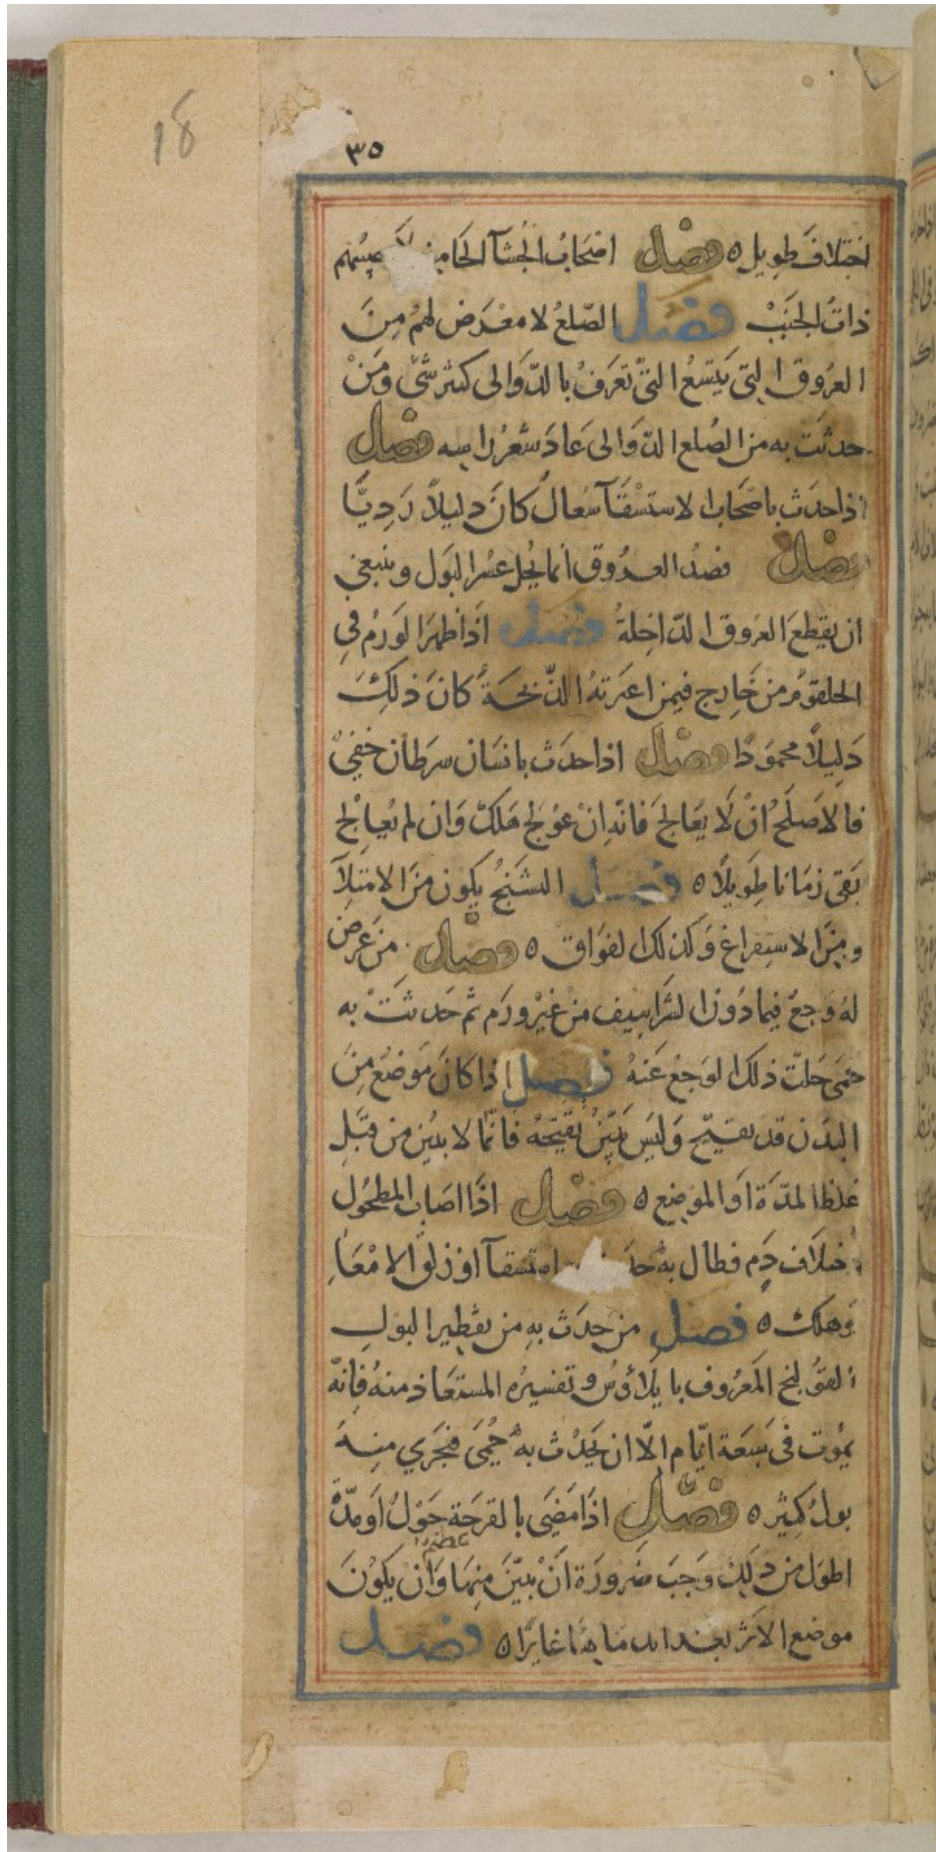 18
٣٥
اختلاف طويل ه فصل اصحاب الجشآ الحامض لا يصيبهم
ذات الجنب فصل الصلع لا معرض لهم من
العروق التي يتسع التي تعرف بالدوالي كثير شيء ومن
حدثت به من الصلع الدوالي عاد شعر راسه فصل
اذا حدث باصحاب الاستسقآ سعال كان دليلاً رديّا
فصل فصد العروق انما يحل عسر البول وينبغي
ان يقطع العروق الداخلة فصل اذا ظهر الورم في
الحلقوم من خارج فيمن اعترته الذبحة كان ذلك
دليلاً محمودًا فصل اذا حدث بانسان سرطان خفيّ
فالاصلح ان لا يعالج فانه ان عولج هلك وان لم يعالج
بقي زمانا طويلاً ه فصل التشنج يكون من الامتلآ
ومن الاستفراغ وكذلك الفواق ه فصل من عرض
له وجع فيما دون الشراسيف من غير ورم ثم حدثت به
حمى حلت ذلك الوجع عنه فصل اذا كان موضع من
البدن قد تقيح وليس يبين تقيحه فانما لا يبين من قبل
غلظ المدة او الموضع ه فصل اذا اصاب المطحول
اختلاف دم فطال به استسقآ او زلق الامعا
وهلك ه فصل من حدث به من تقطير البول
القولنج المعروف بايلاؤس وتفسيره المستعاذ منه فانه
يموت في سبعة ايّام الّا ان يحدث به حمى فيجري منه
بول كثير ه فصل اذا مضى بالقرحة حول او مدّة
اطول من ذلك وجب ضرورة ان يبين منها عظم وان يكون
موضع الاثر بعد اندمالها غايرًا ه فصل